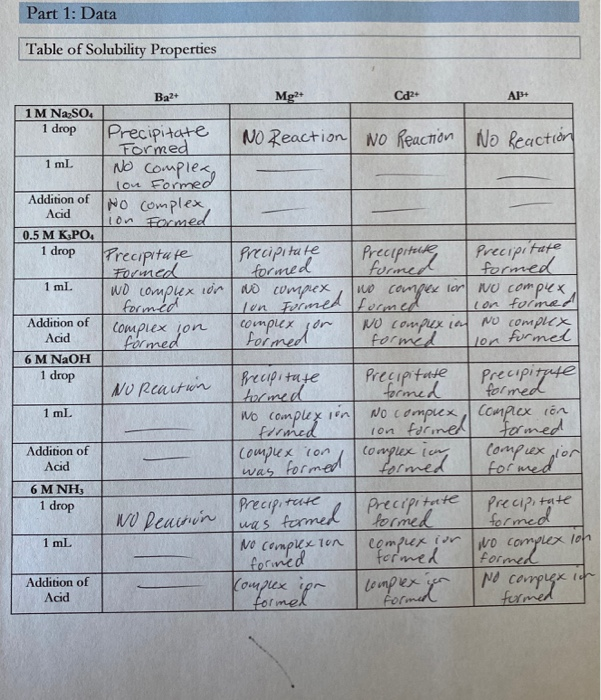 Part 1: Data
Table of Solubility Properties
Ba²⁺ Mg²⁺ Cd²⁺ Al³⁺
1 M Na₂SO₄
1 drop Precipitate Formed NO Reaction NO Reaction No Reaction
1 mL No complex ion Formed
Addition of Acid NO complex ion Formed
0.5 M K₃PO₄
1 drop Precipitate Formed Precipitate formed Precipitate formed Precipitate formed
1 mL NO complex ion formed NO complex ion Formed NO complex ion formed NO complex ion formed
Addition of Acid complex ion formed complex ion formed NO complex ion formed NO complex ion formed
6 M NaOH
1 drop NO Reaction Precipitate formed Precipitate formed precipitate formed
1 mL No complex ion formed NO complex ion formed Complex ion formed
Addition of Acid complex ion was formed complex ion formed Complex ion formed
6 M NH₃
1 drop NO Reaction Precipitate was formed Precipitate formed Precipitate formed
1 mL No complex ion formed complex ion formed NO complex ion formed
Addition of Acid Complex ion formed complex ion formed NO complex ion formed